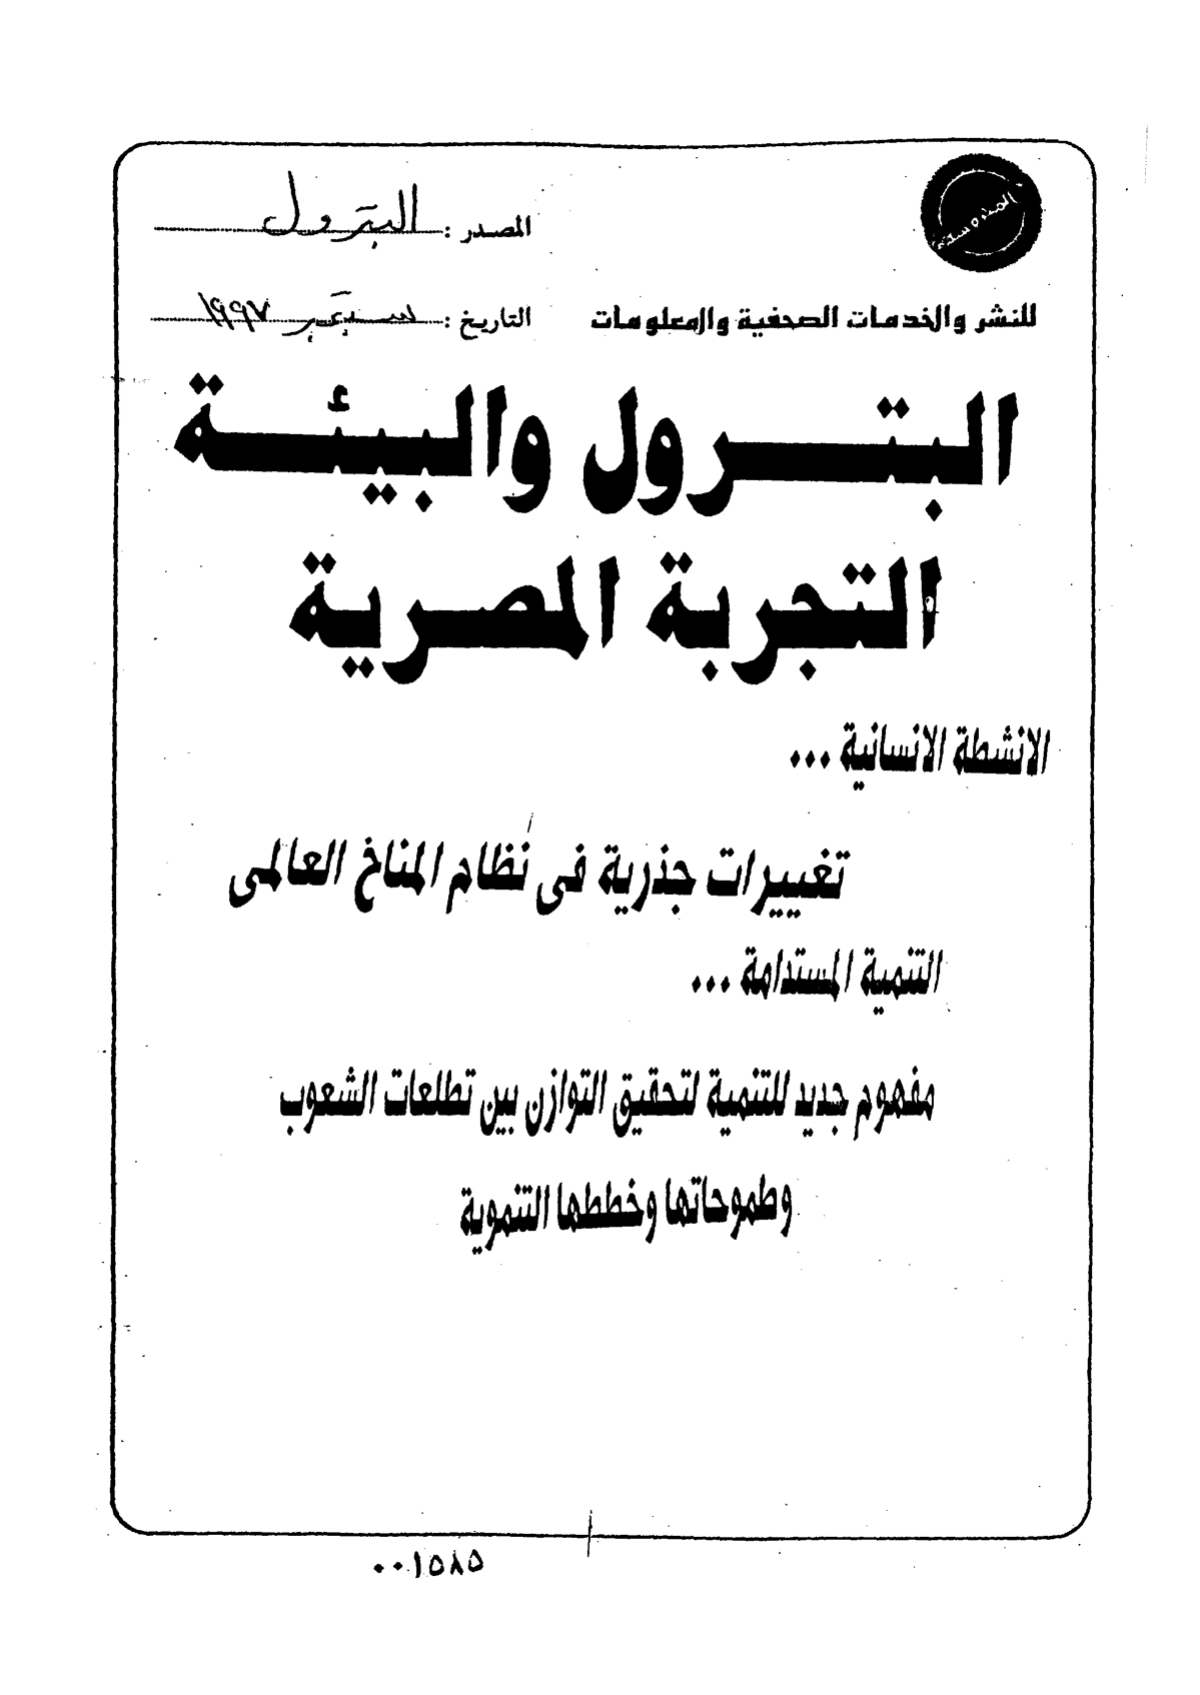 المصدر : البترول
للنشر والخدمات الصحفية والمعلومات
التاريخ : سبتمبر ١٩٩٧
البترول والبيئة
التجربة المصرية
الانشطة الانسانية ...
تغييرات جذرية فى نظام المناخ العالمى
التنمية المستدامة ...
مفهوم جديد للتنمية لتحقيق التوازن بين تطلعات الشعوب
وطموحاتها وخططها التنموية
٠٠١٥٨٥